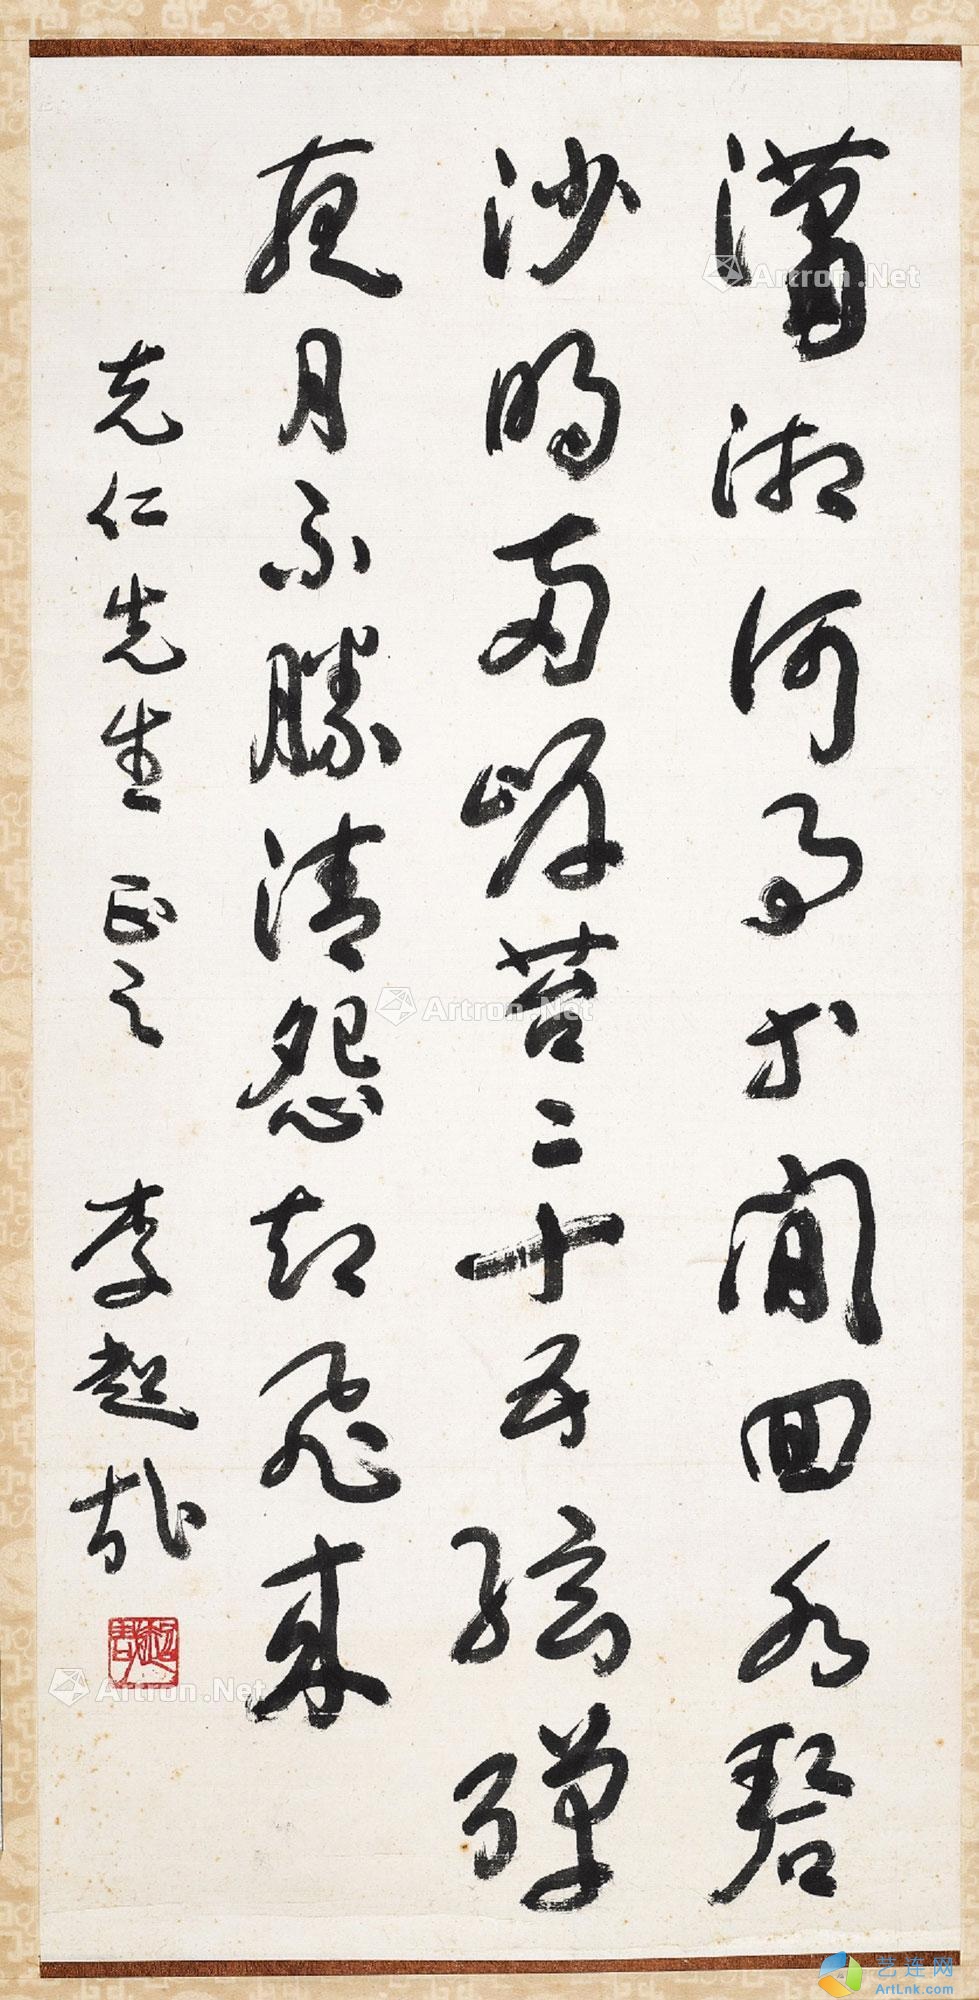 瀟湘何事等閒回水碧
沙明兩岸苔二十五絃彈
夜月不勝清怨却飛來
克仁先生 正之 李超哉
Artron.Net
Artron.Net
Artron.Net
艺连网
ArtLnk.com